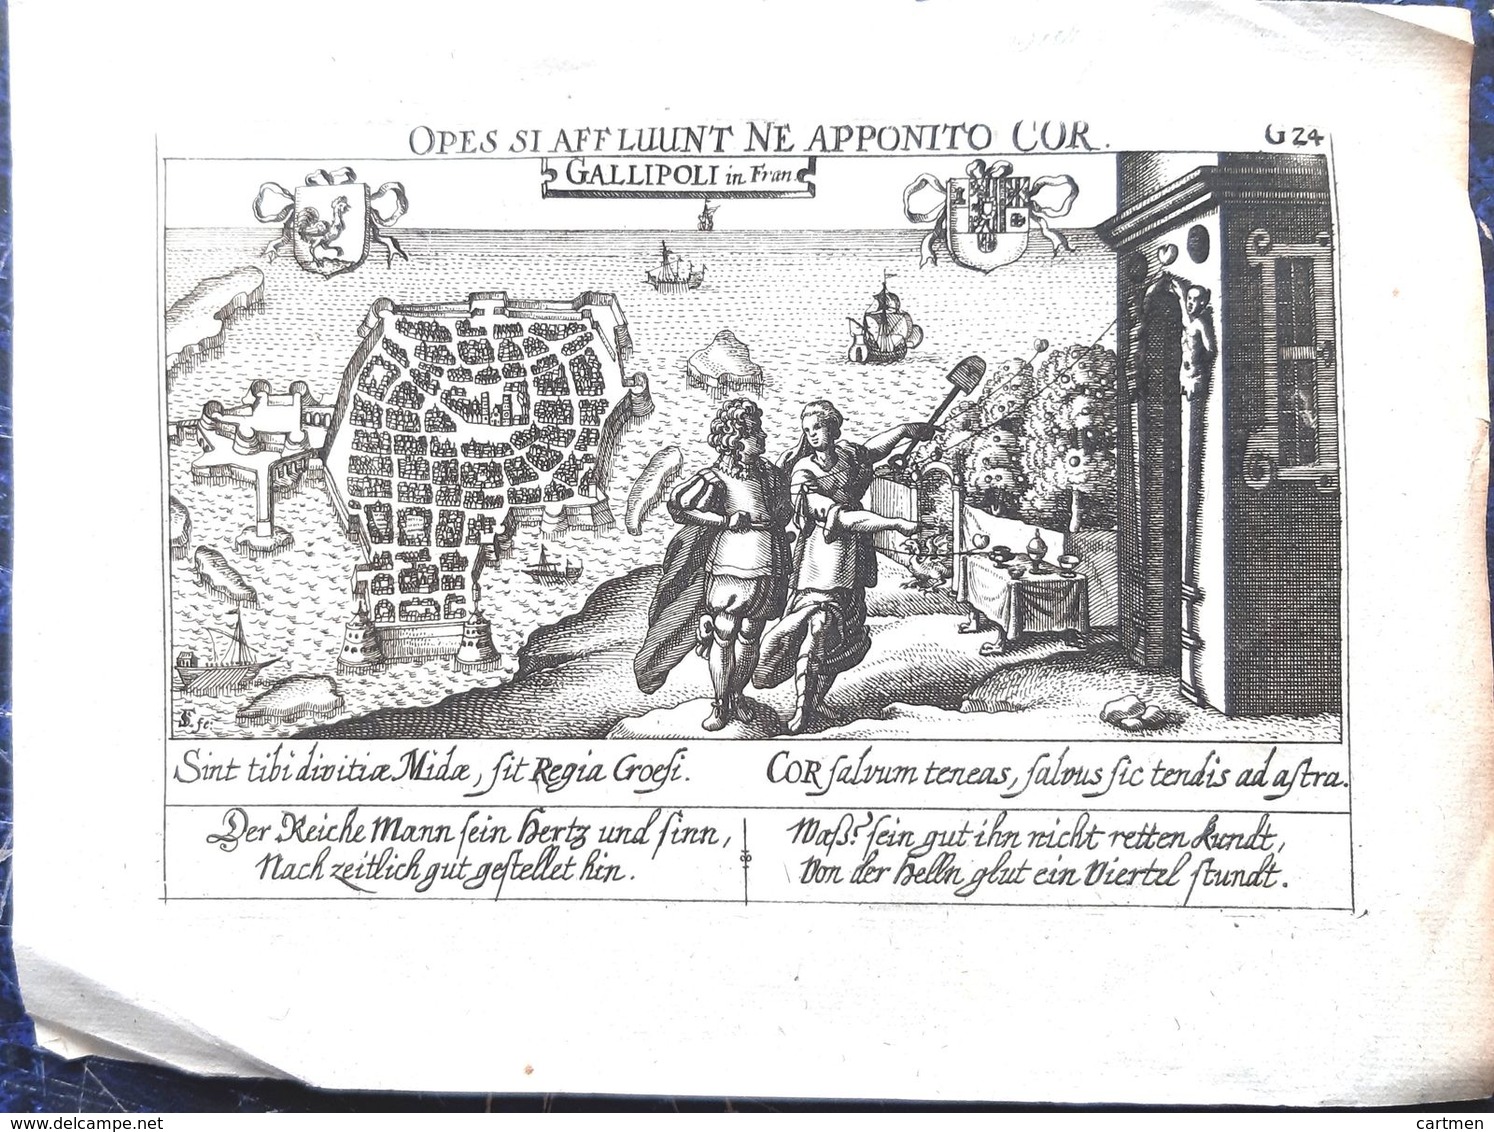 OPES SI AFFLUUNT NE APPONITO COR. G 24
GALLIPOLI in Fran.
S fe:
Sint tibi divitiæ Midæ, sit Regia Croesi. COR salvum teneas, salvus sic tendis ad astra.
Der Reiche Mann sein Hertz und sinn,
Nach zeitlich gut gestellet hin.
Waß? sein gut ihn nicht retten kundt,
Von der Helln glut ein Viertel stundt.
cartmen